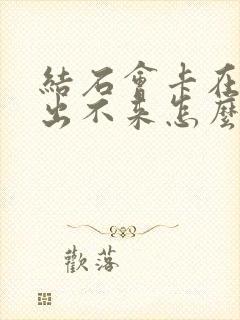 結石會卡在
出不來怎麼
歡落